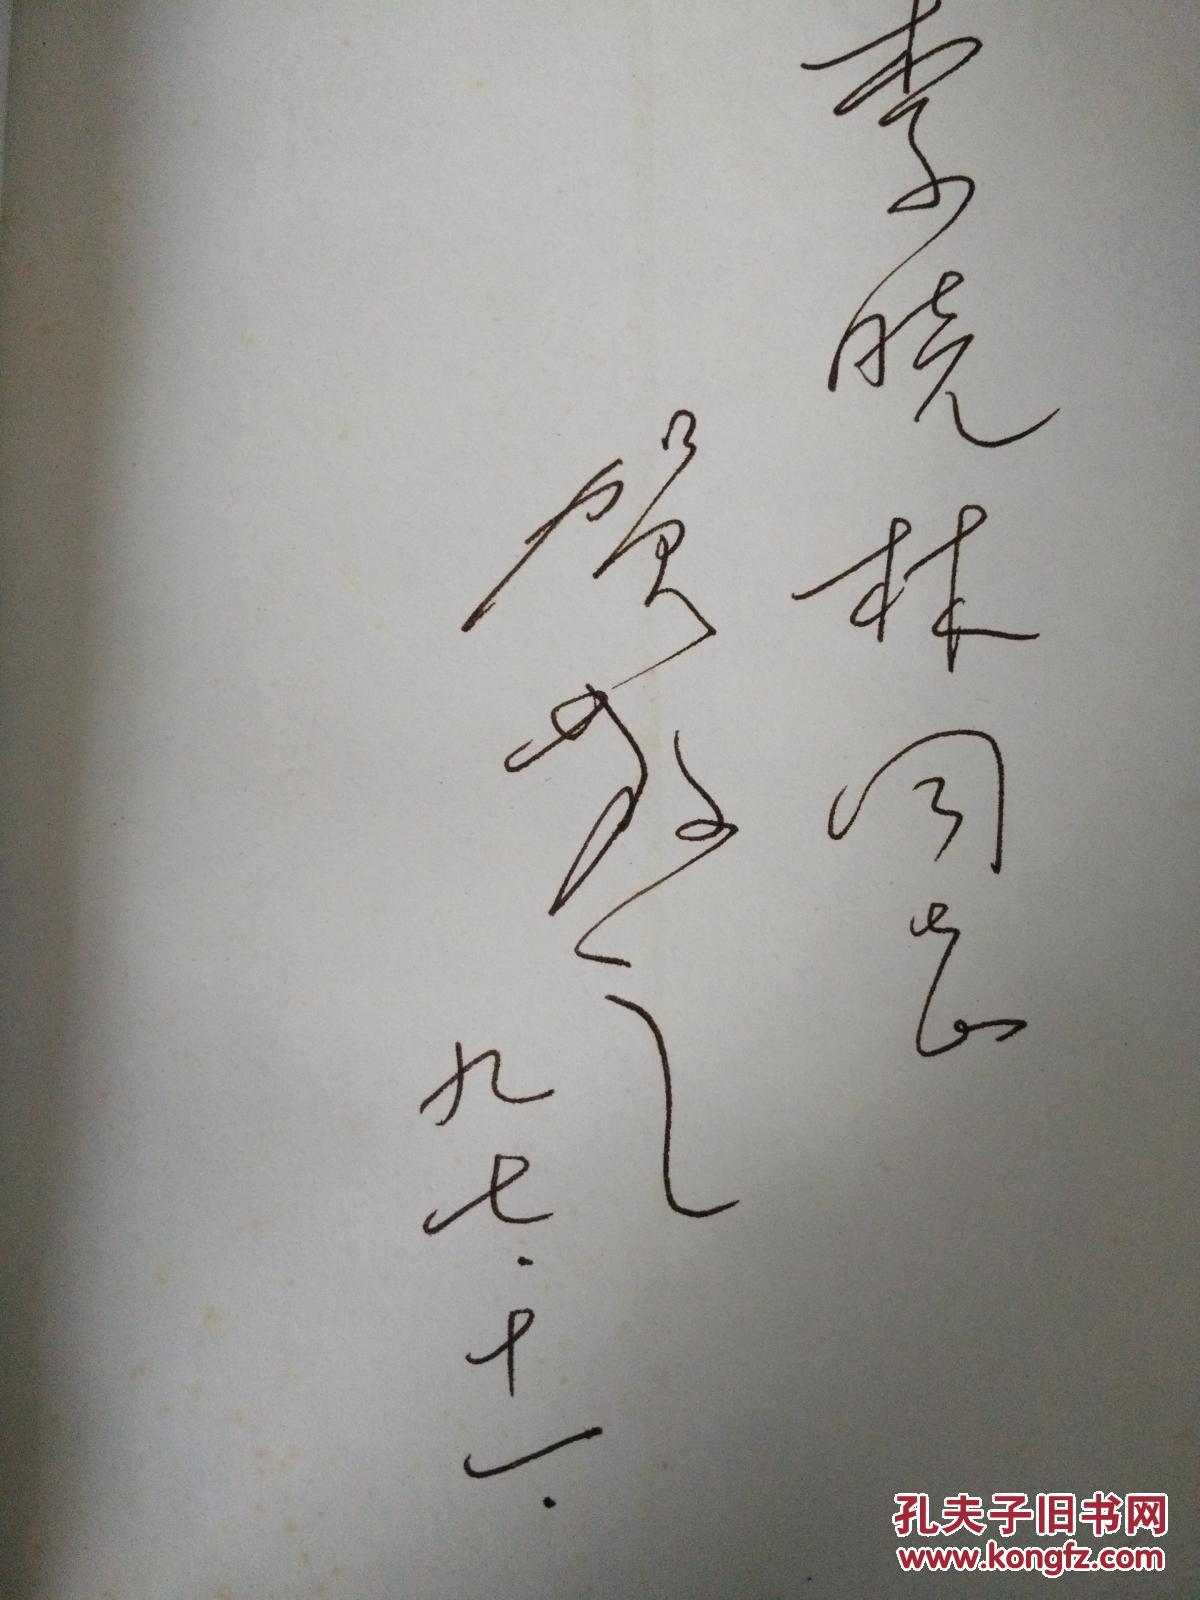 李晓林同志
贺敬之
九七.十一.
孔夫子旧书网
www.kongfz.com